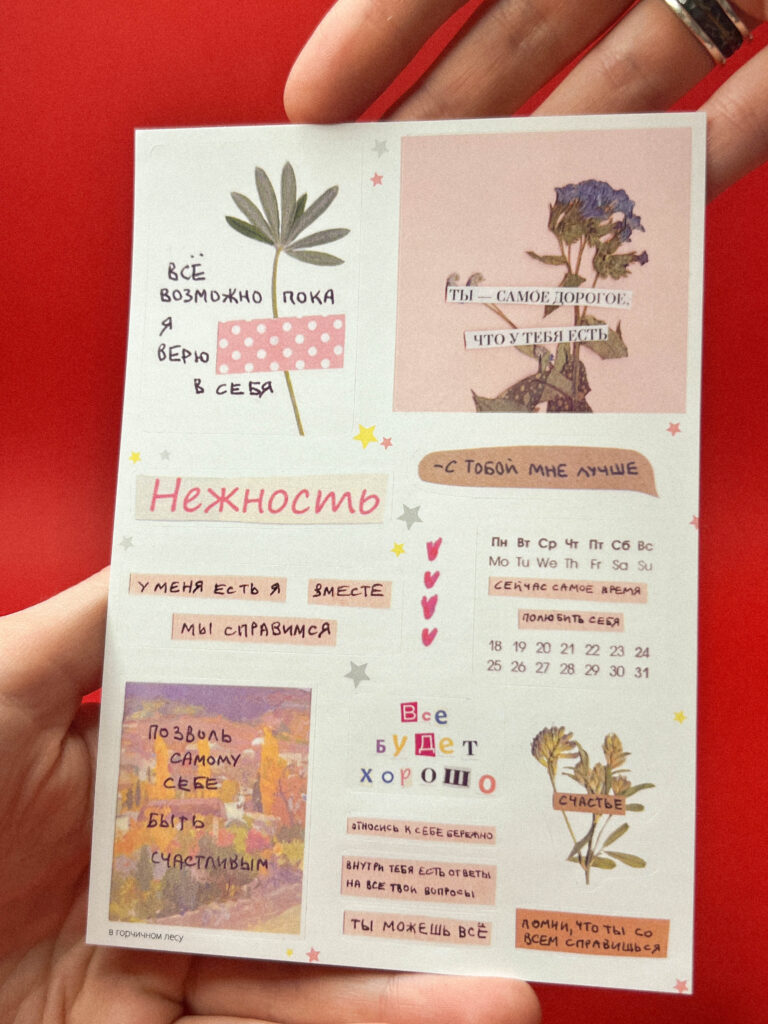 ВСЁ
ВОЗМОЖНО ПОКА
Я
ВЕРЮ
В СЕБЯ
ТЫ — САМОЕ ДОРОГОЕ,
ЧТО У ТЕБЯ ЕСТЬ
-С ТОБОЙ МНЕ ЛУЧШЕ
Нежность
У МЕНЯ ЕСТЬ Я ВМЕСТЕ
МЫ СПРАВИМСЯ
Пн Вт Ср Чт Пт Сб Вс
Mo Tu We Th Fr Sa Su
СЕЙЧАС САМОЕ ВРЕМЯ
ПОЛЮБИТЬ СЕБЯ
18 19 20 21 22 23 24
25 26 27 28 29 30 31
ПОЗВОЛЬ
САМОМУ
СЕБЕ
БЫТЬ
СЧАСТЛИВЫМ
в горчичном лесу
Все
буДет
хороШо
ОТНОСИСЬ К СЕБЕ БЕРЕЖНО
ВНУТРИ ТЕБЯ ЕСТЬ ОТВЕТЫ
НА ВСЕ ТВОИ ВОПРОСЫ
ТЫ МОЖЕШЬ ВСЁ
СЧАСТЬЕ
ПОМНИ, ЧТО ТЫ СО
ВСЕМ СПРАВИШЬСЯ